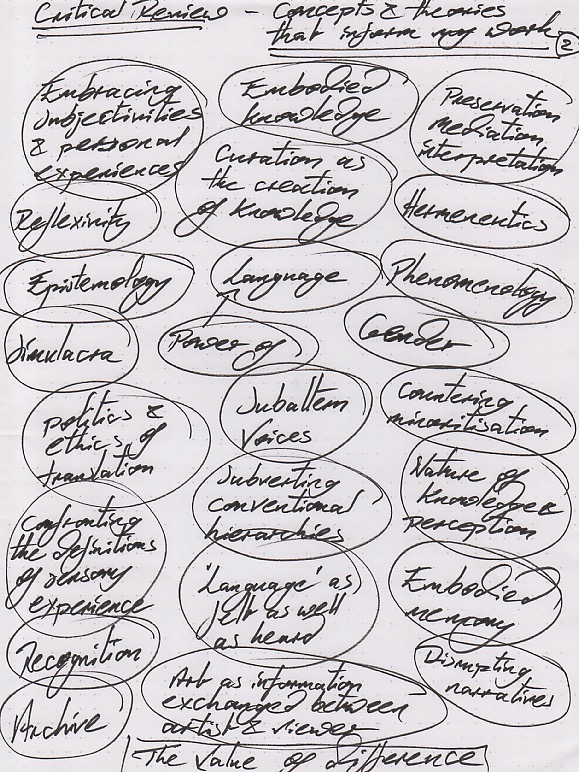 Critical Review - Concepts & theories
that inform my work
2
Embracing
subjectivities
& personal
experiences
Embodied
knowledge
Preservation
mediation
interpretation
Curation as
the creation
of knowledge
Reflexivity
Hermeneutics
Epistemology
Language
Phenomenology
Simulacra
Power of
Gender
Politics &
ethics of
translation
Subaltern
Voices
Countering
minoritisation
Subverting
conventional
hierarchies
Nature of
knowledge &
perception
Confronting
the definitions
of sensory
experience
'Language' as
felt as well
as heard
Embodied
memory
Recognition
Disrupting
narratives
Archive
Art as information
exchanged between
artist & viewer
The value of difference